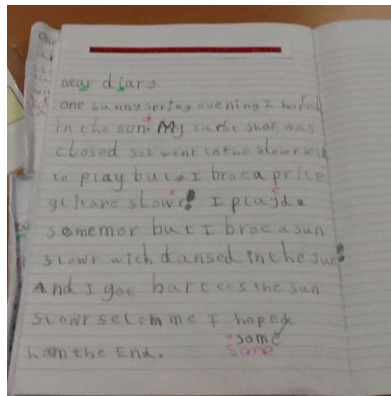 Dear diary
one sunny spring evening I hoped
in the sun. My carit shop was
closed so I went to the flowr
to play but I broc a price
flowr! I playd
somemor but I broc a sun
flowr wich dansed in the sun!
And I got hart cos the sun
flowr on me I hoped
ham the End.
some
some